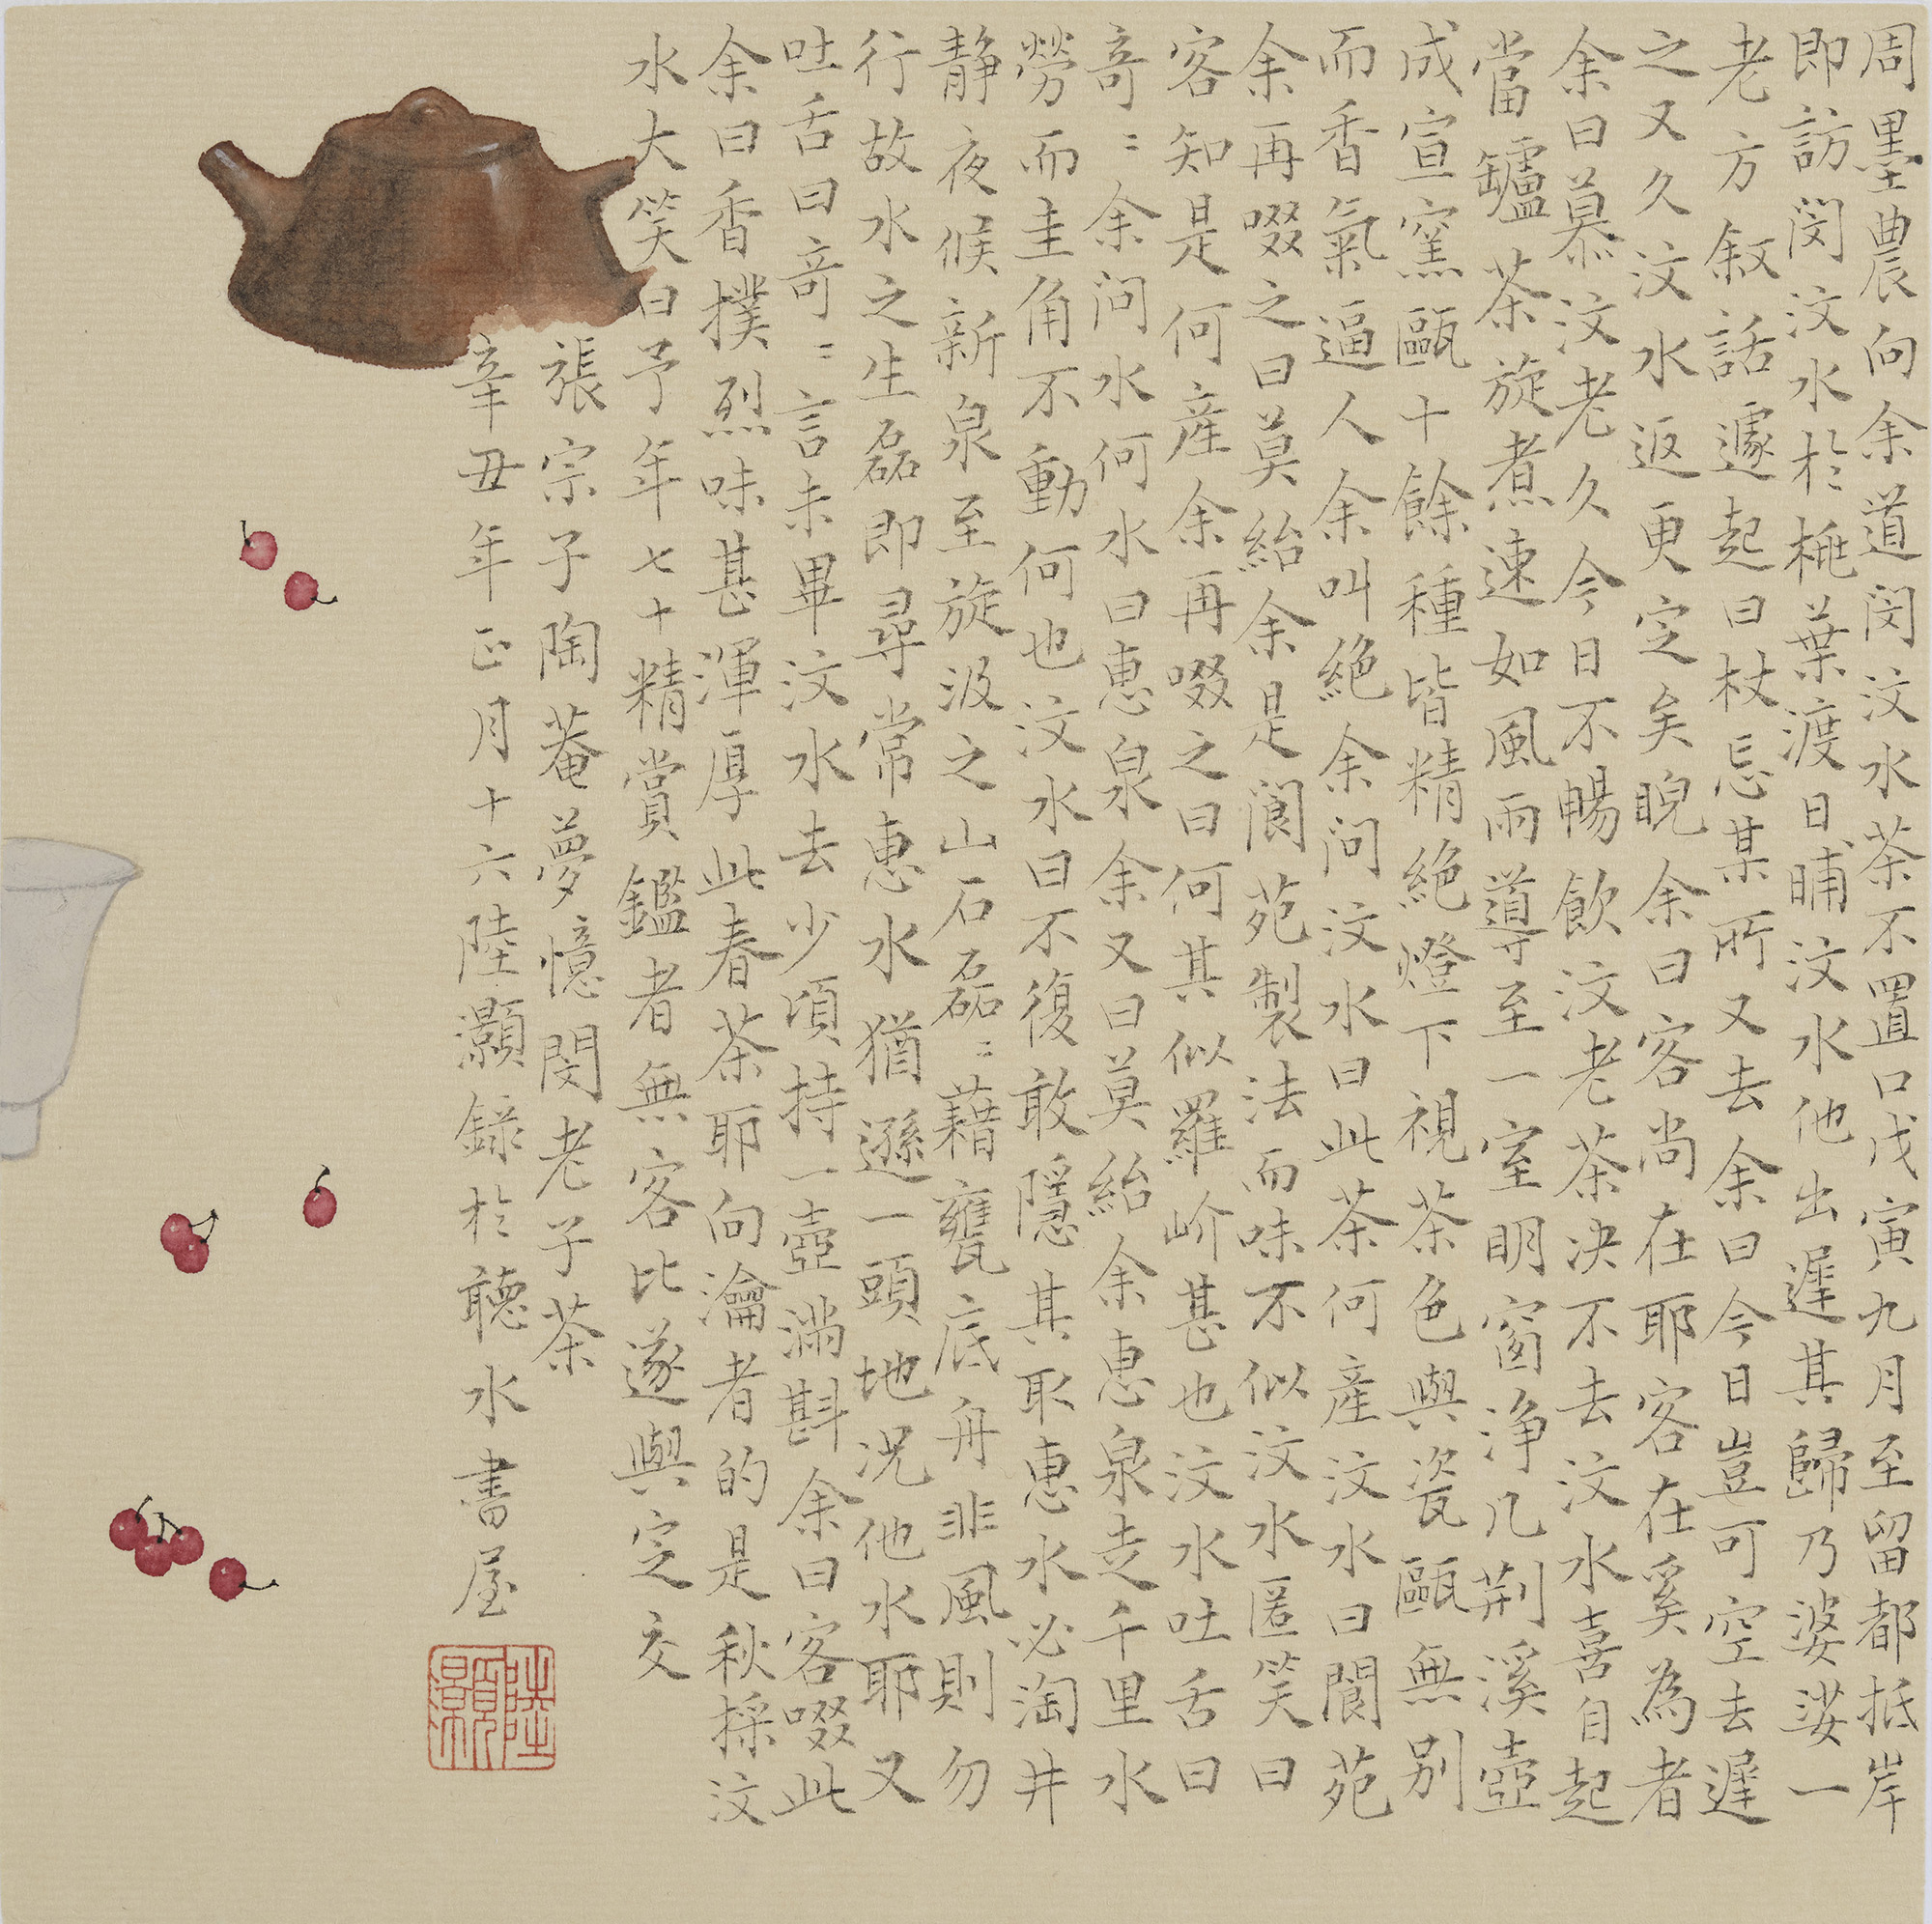 周墨農向余道閔汶水茶不置口戊寅九月至留都抵岸
即訪閔汶水於桃葉渡日晡汶水他出遲其歸乃婆娑一
老方叙話遽起曰杖忘某所又去余曰今日豈可空去遲
之又久汶水返更定矣睨余曰客尚在耶客在奚為者
余曰慕汶老久今日不暢飲汶老茶決不去汶水喜自起
當罏茶旋煮速如風雨導至一室明窗净几荆溪壺
成宣窯甌十餘種皆精絕燈下視茶色與瓷甌無别
而香氣逼人余叫絕余问汶水曰此茶何產汶水曰閬苑
余再啜之曰莫紿余是閬苑製法而味不似汶水匿笑曰
客知是何產余再啜之曰何其似羅岕甚也汶水吐舌曰
奇〻余问水何水曰惠泉余又曰莫紿余惠泉走千里水
勞而圭角不動何也汶水曰不復敢隱其取惠水必淘井
静夜候新泉至旋汲之山石磊〻藉甕底舟非風則勿
行故水之生磊即尋常惠水猶遜一頭地况他水耶又
吐舌曰奇〻言未畢汶水去少頃持一壺满斟余曰客啜此
余曰香撲烈味甚渾厚此春茶耶向瀹者的是秋採汶
水大笑曰予年七十精賞鑑者無客比遂與定交
張宗子陶菴夢憶閔老子茶
辛丑年正月十六陸灝錄於聽水書屋
陸灝